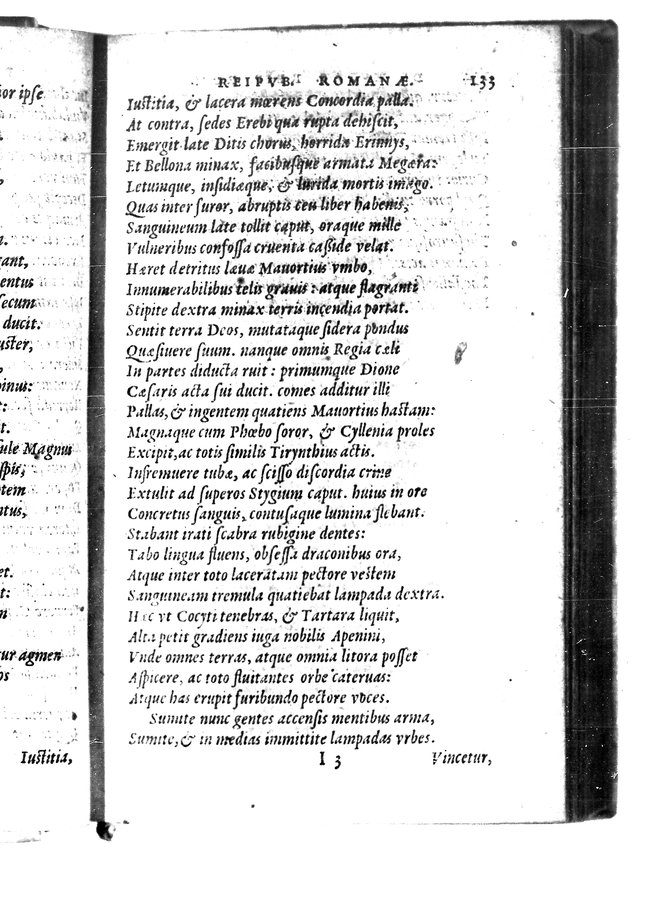 ior ipse
.
ant,
entus
secum
ducit.
uster,
pinus:
t:
t.
sule Magnus
spis;
otem
ntus,
et.
t:
m
tur agmen
os
Iustitia,
REIPVB. ROMANÆ. 133
Iustitia, & lacera mœrens Concordia palla.
At contra, sedes Erebi qua rupta dehiscit,
Emergit late Ditis chorus, horrida Erinnys,
Et Bellona minax, facibusque armata Megæra:
Letumque, insidiæque, & lurida mortis imago.
Quas inter furor, abruptis ceu liber habenis,
Sanguineum late tollit caput, oraque mille
Vulneribus confossa cruenta casside velat.
Hæret detritus læuæ Mauortius vmbo,
Innumerabilibus telis grauis: atque flagranti
Stipite dextra minax terris incendia portat.
Sentit terra Deos, mutataque sidera pondus
Quæsiuere suum. nanque omnis Regia cæli
In partes diducta ruit: primumque Dione
Cæsaris acta sui ducit. comes additur illi
Pallas, & ingentem quatiens Mauortius hastam:
Magnaque cum Phœbo soror, & Cyllenia proles
Excipit, ac totis similis Tirynthius actis.
Infremuere tubæ, ac scisso discordia crine
Extulit ad superos Stygium caput. huius in ore
Concretus sanguis, contusaque lumina flebant.
Stabant irati scabra rubigine dentes:
Tabo lingua fluens, obsessa draconibus ora,
Atque inter toto laceratam pectore vestem
Sanguineam tremula quatiebat lampada dextra.
Hæc vt Cocyti tenebras, & Tartara liquit,
Alta petit gradiens iuga nobilis Apenini,
Vnde omnes terras, atque omnia litora posset
Aspicere, ac toto fluitantes orbe cateruas:
Atque has erupit furibundo pectore voces.
Sumite nunc gentes accensis mentibus arma,
Sumite, & in medias immittite lampadas vrbes.
I 3 Vincetur,